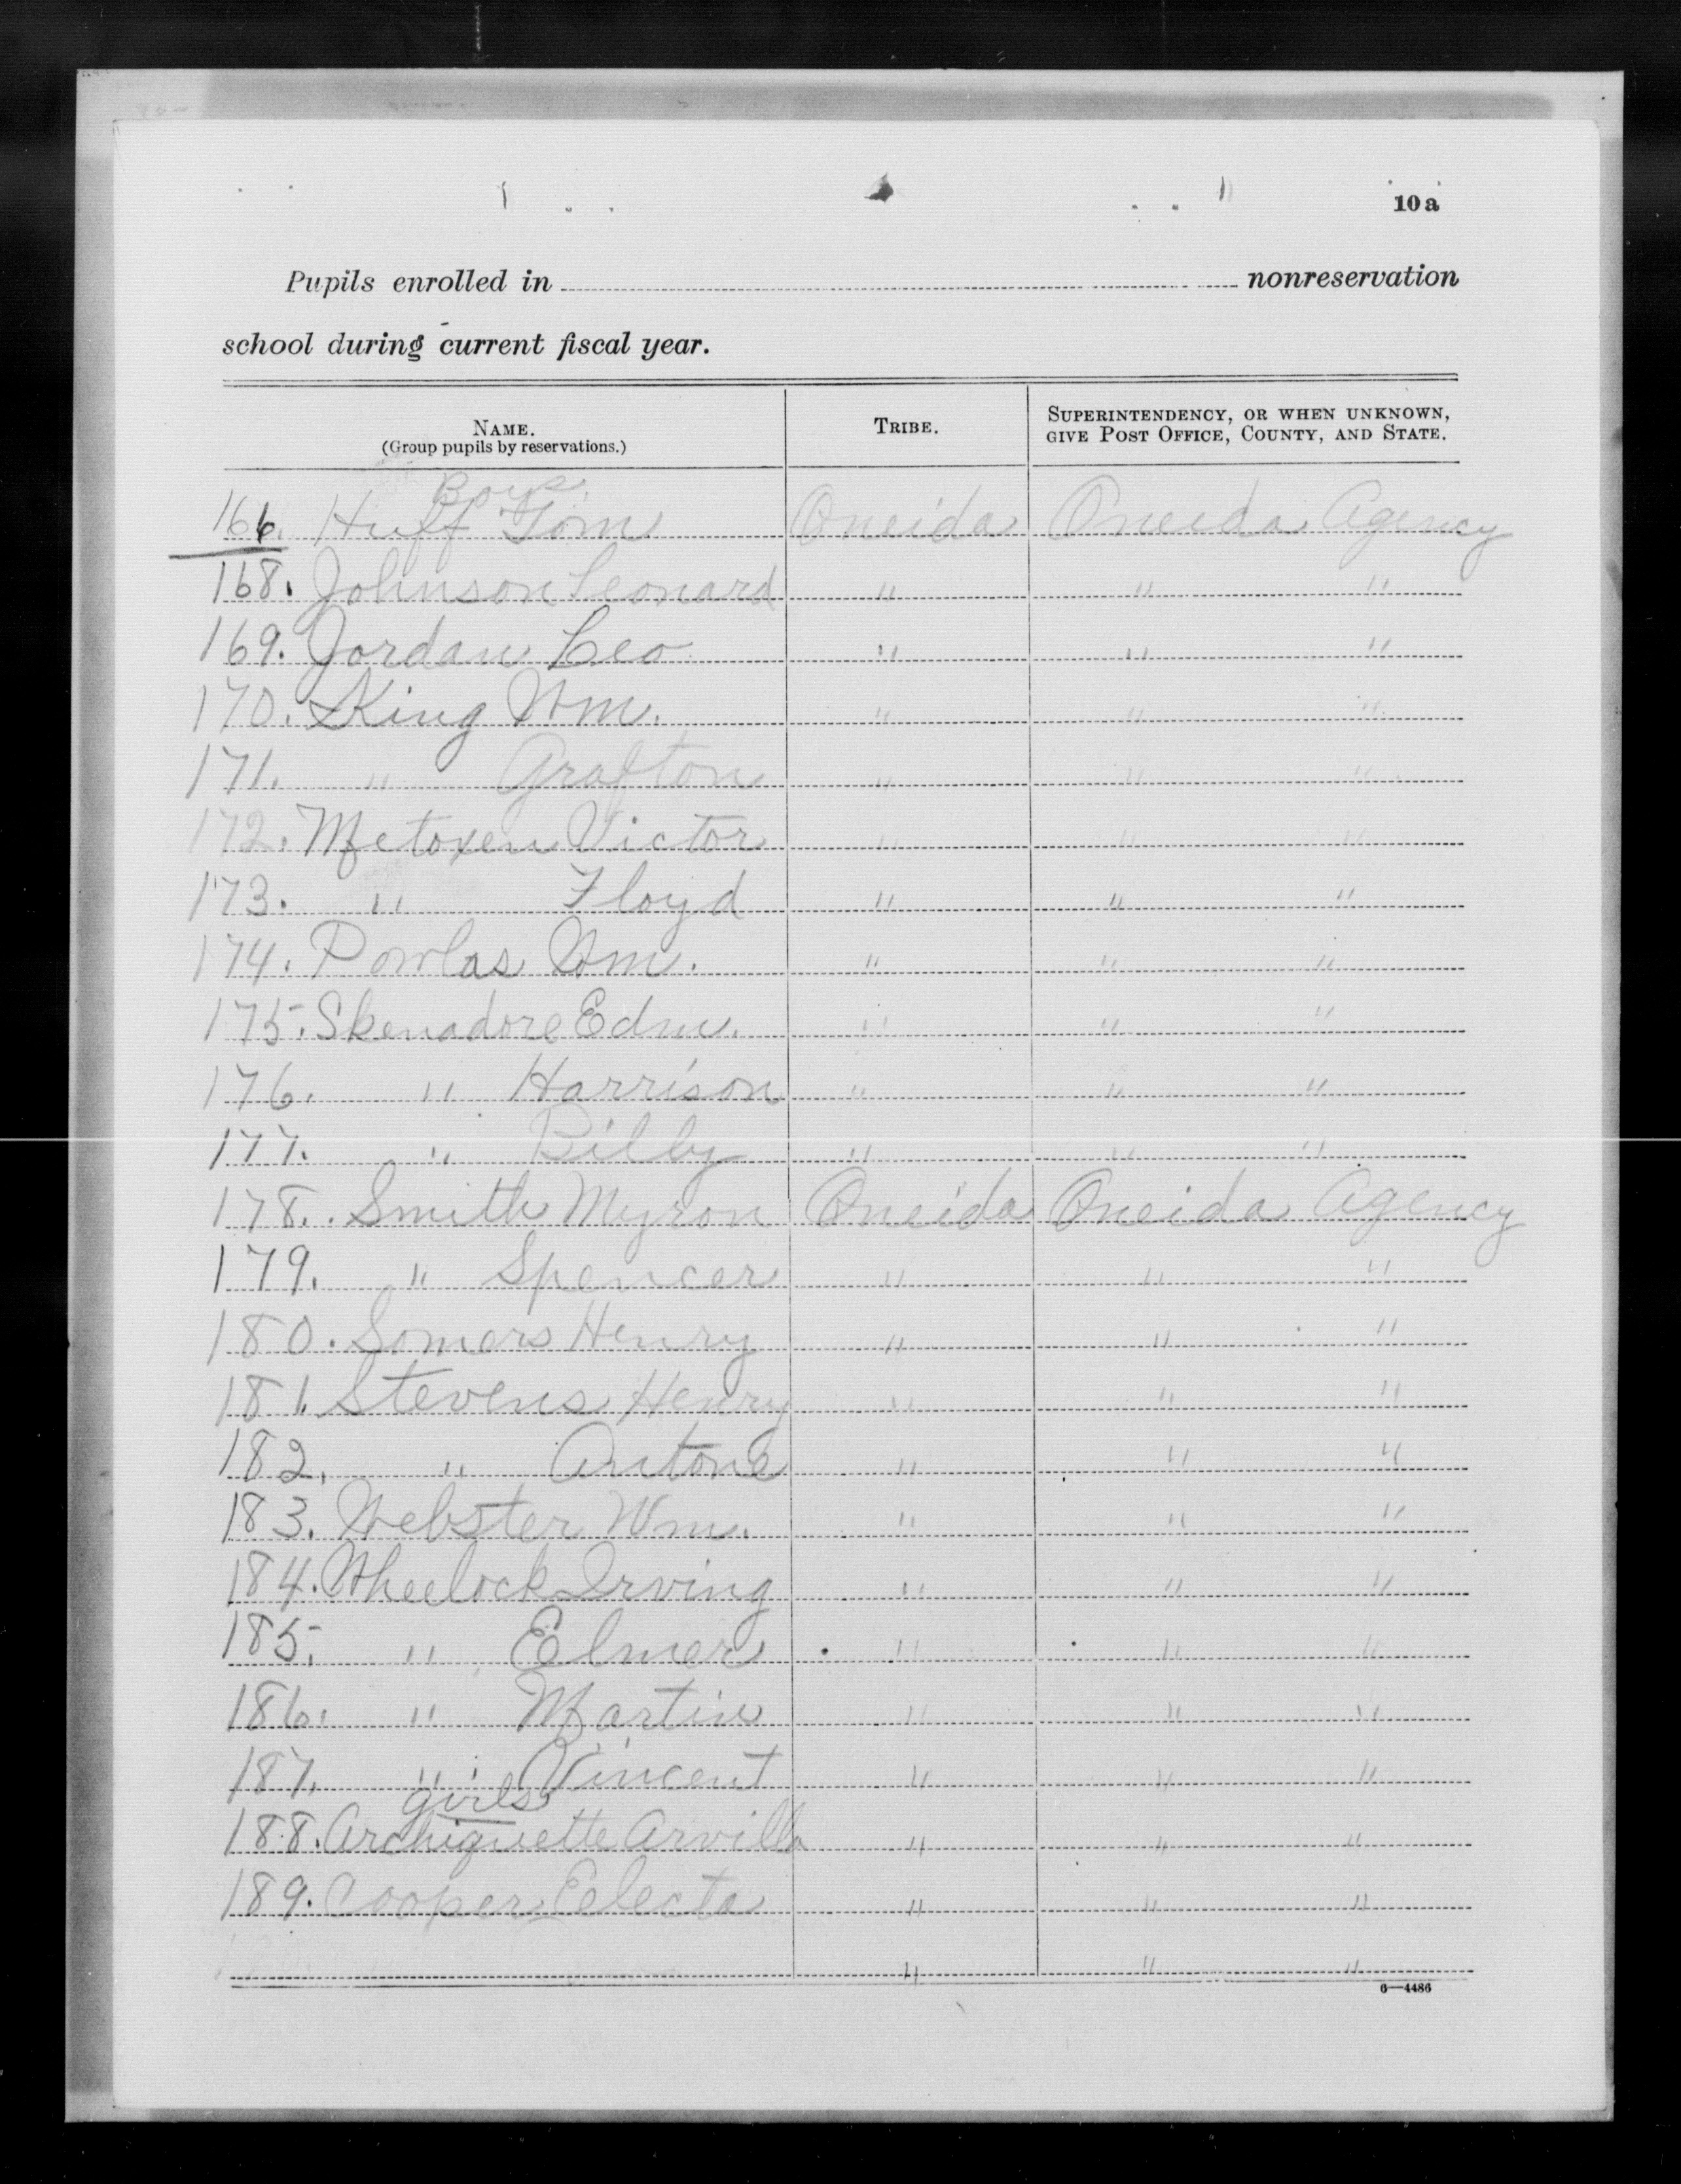 10a
Pupils enrolled in nonreservation
school during current fiscal year.
NAME. (Group pupils by reservations.) TRIBE. SUPERINTENDENCY, OR WHEN UNKNOWN, GIVE POST OFFICE, COUNTY, AND STATE.
Boys
166. Huff Tom Oneida Oneida Agency
168. Johnson Leonard " " "
169. Jordan Leo " " "
170. King Wm. " " "
171. " Grafton " " "
172. Metoxen Victor " " "
173. " Floyd " " "
174. Powlas Wm. " " "
175. Skenadore Edm. " " "
176. " Harrison " " "
177. " Billy " " "
178. Smith Myron Oneida Oneida Agency
179. " Spencer " " "
180. Somers Henry " " "
181. Stevens Henry " " "
182. " Antone " " "
183. Webster Wm. " " "
184. Wheelock Irving " " "
185. " Elmer " " "
186. " Martin " " "
187. " Vincent " " "
girls
188. Archiquette Arvilla " " "
189. Cooper Electa " " "
" " "
6—4486